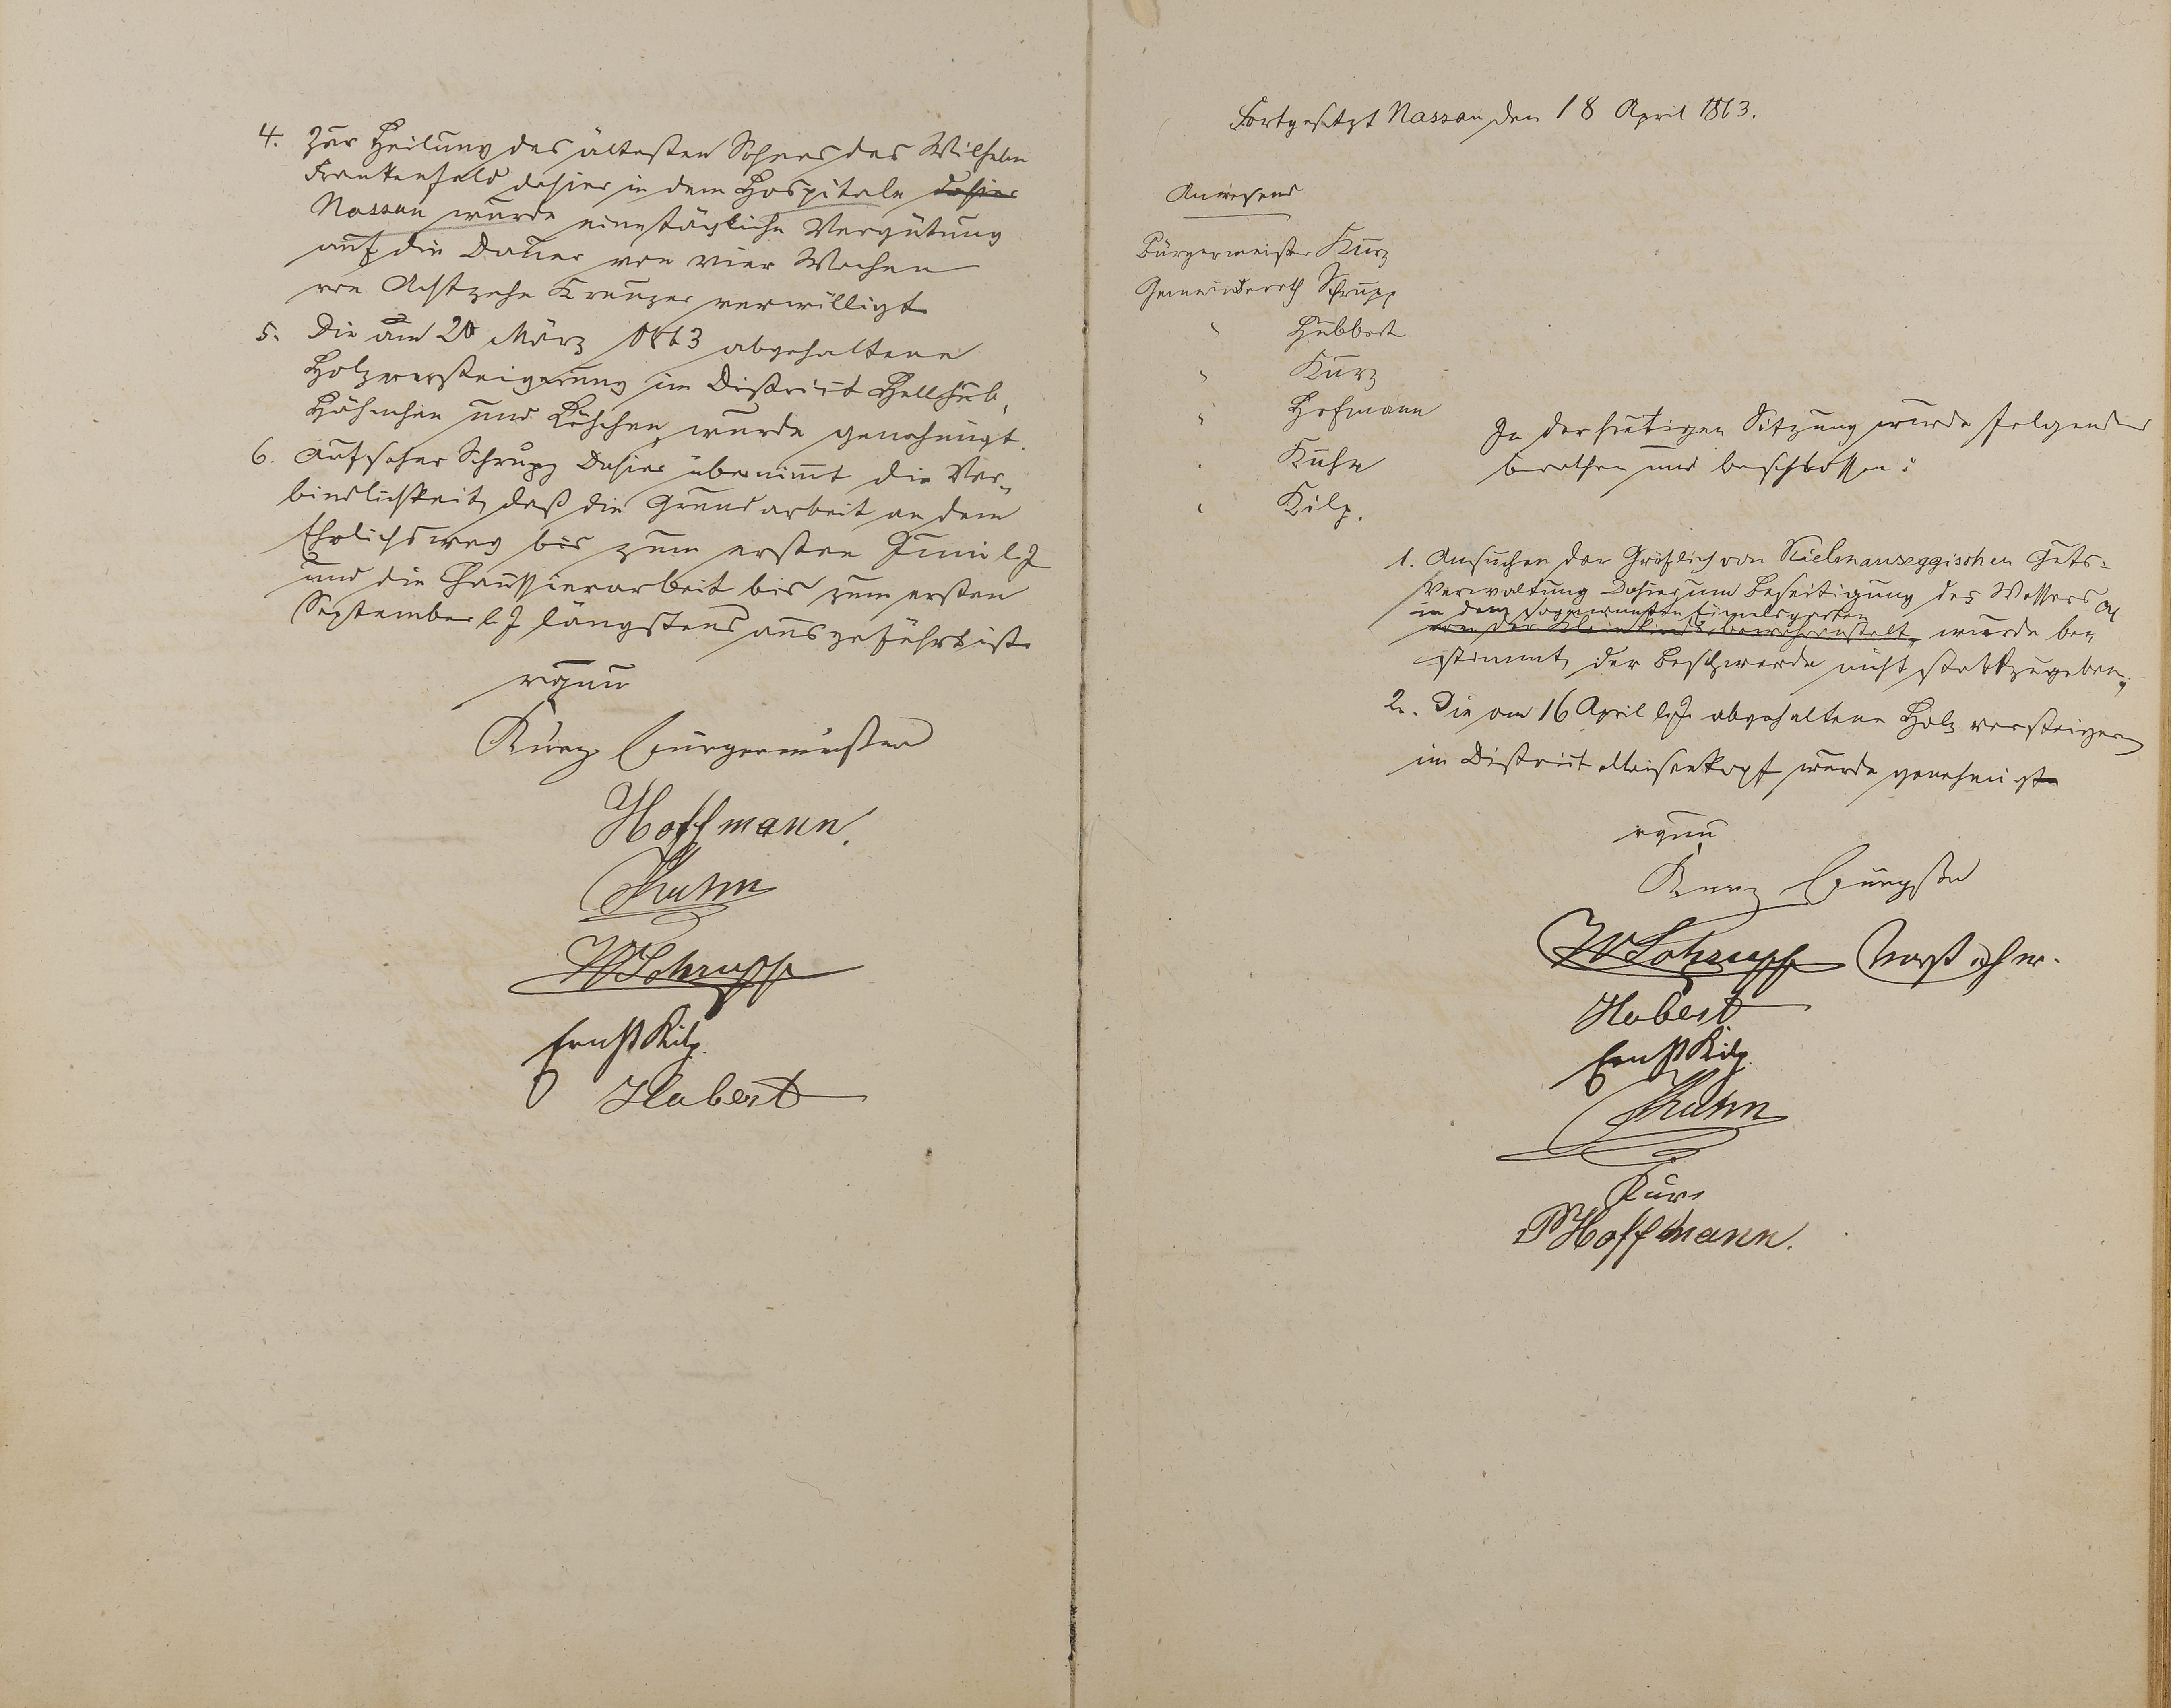 4. Zur Heilung des ältesten Sohnes des Wilhelm
Frankenfeld dahier in dem Hospitale dahier
Nassau wurde eine tägliche Vergütung
auf die Dauer von vier Wochen
von Achtzehn Kreuzer verwilligt.
5. Die am 20 März 1863 abgehaltene
Holzversteigerung im District Hellhub,
Höhnchen und wurde genehmigt.
6. Aufseher Schrupp dahier übernimmt die Ver-
bindlichkeit, daß die Grundarbeit an dem
Ehrlichsweg bis zum ersten Juni l J
und die Chaussierarbeit bis zum ersten
September l J längstens ausgeführt ist.
vgnu
Kurz Bürgermeister
Hoffmann.
Kuhn
W Schrupp
Ernst Kilp.
Habert
Fortgesetzt Nassau den 18 April 1863.
Anwesend
Bürgermeister Kurz
Gemeinderath Schrupp
" Hubbert
" Kurz
" Hofmann
" Kuhn
" Kilp.
In der heutigen Sitzung wurde folgendes
berathen und beschlossen:
1. Ansuchen der Gräflich von Kielmanseggischen Guts-
Verwaltung dahier um Beseitigung des Wassers
in dem sogenannten
von der Kleinkinderbewahranstalt, wurde be-
stimmt, der Beschwerde nicht stattzugeben.
2. Die am 16 April l. J. abgehaltene Holzversteigerung
im District Maisenkopf wurde genehmigt
vgnu
Kurz Bürgstr
W Schrupp Vorsteher.
Habert
Ernst Kilp.
Kuhn
Kurz
P Hoffmann.